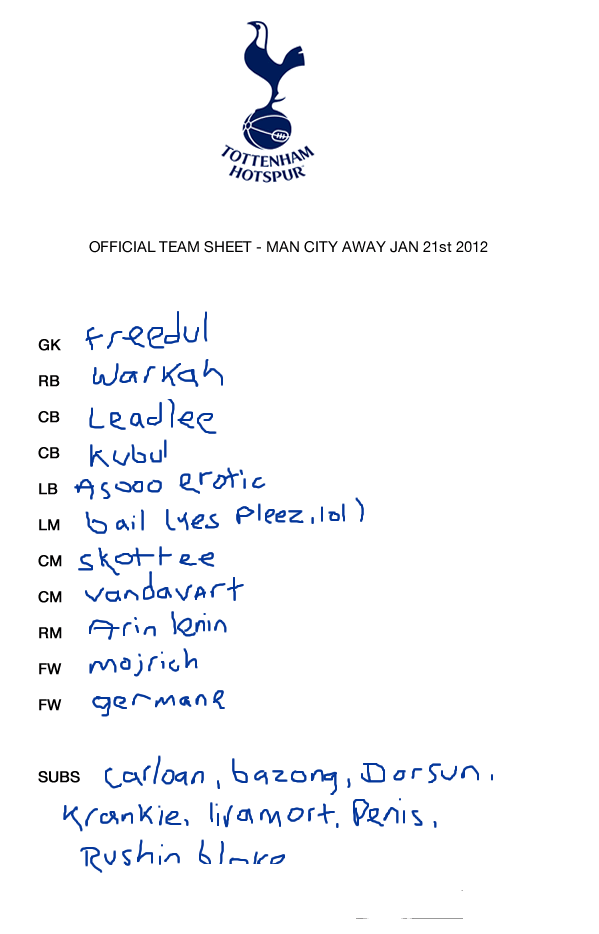 TOTTENHAM
HOTSPUR
OFFICIAL TEAM SHEET - MAN CITY AWAY JAN 21st 2012
GK freedul
RB Warkah
CB Leadlee
CB kubul
LB Asooo erotic
LM bail (yes pleez, lol)
CM skottee
CM vandavart
RM Arin lenin
FW mojrich
FW germane
SUBS Carloan, bazong, Dorsun,
Krankie, livamort, Penis,
Rushin